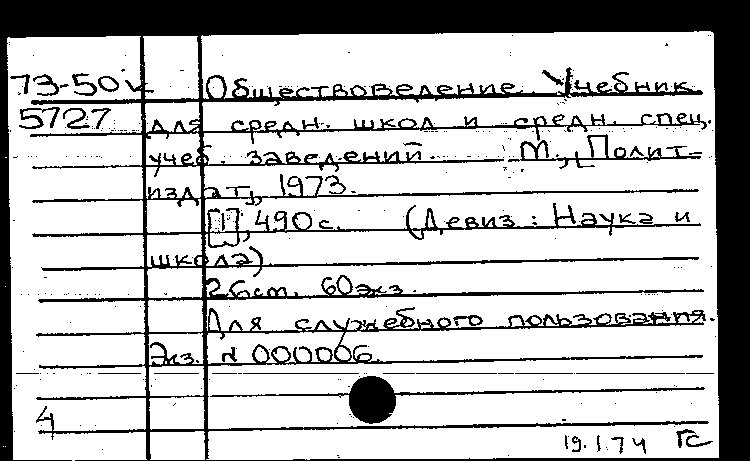 73-50к Обществоведение. Учебник
5727 для средн. школ и средн. спец.
учеб. заведений. М., Полит-
издат, 1973.
490с. (Девиз: Наука и
школа).
26см. 60экз.
Для служебного пользования.
Экз. N 000006.
4
19.1.74 ГС